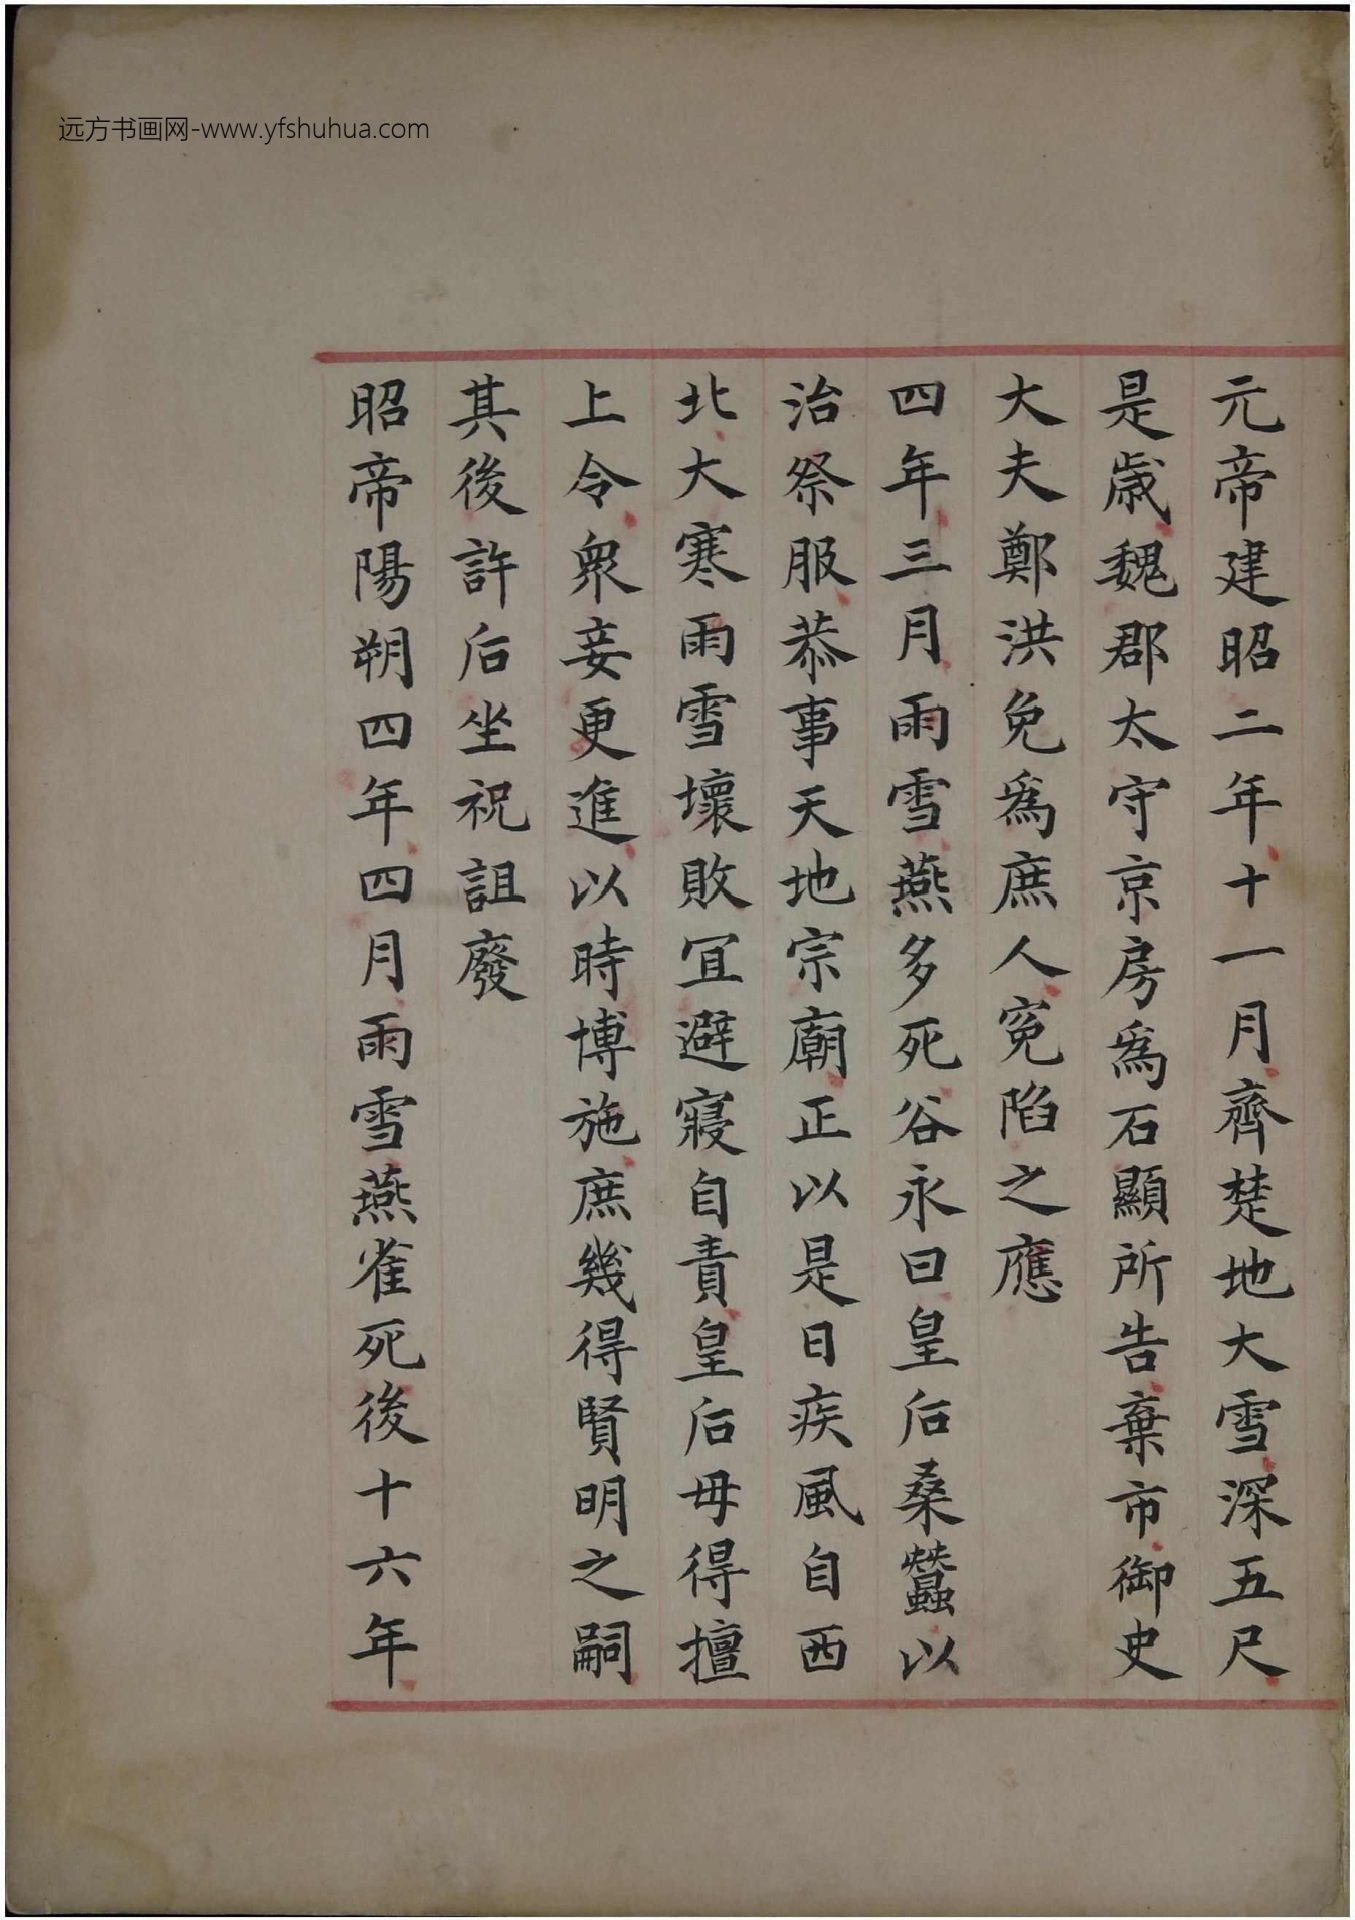 远方书画网-www.yfshuhua.com
元帝建昭二年十一月齊楚地大雪深五尺
是歲魏郡太守京房爲石顯所告棄市御史
大夫鄭洪免爲庶人寃陷之應
四年三月雨雪燕多死谷永曰皇后桑蠶以
治祭服恭事天地宗廟正以是日疾風自西
北大寒雨雪壞敗冝避寢自責皇后毋得擅
上令衆妾更進以時博施庶幾得賢明之嗣
其後許后坐祝詛廢
昭帝陽朔四年四月雨雪燕雀死後十六年